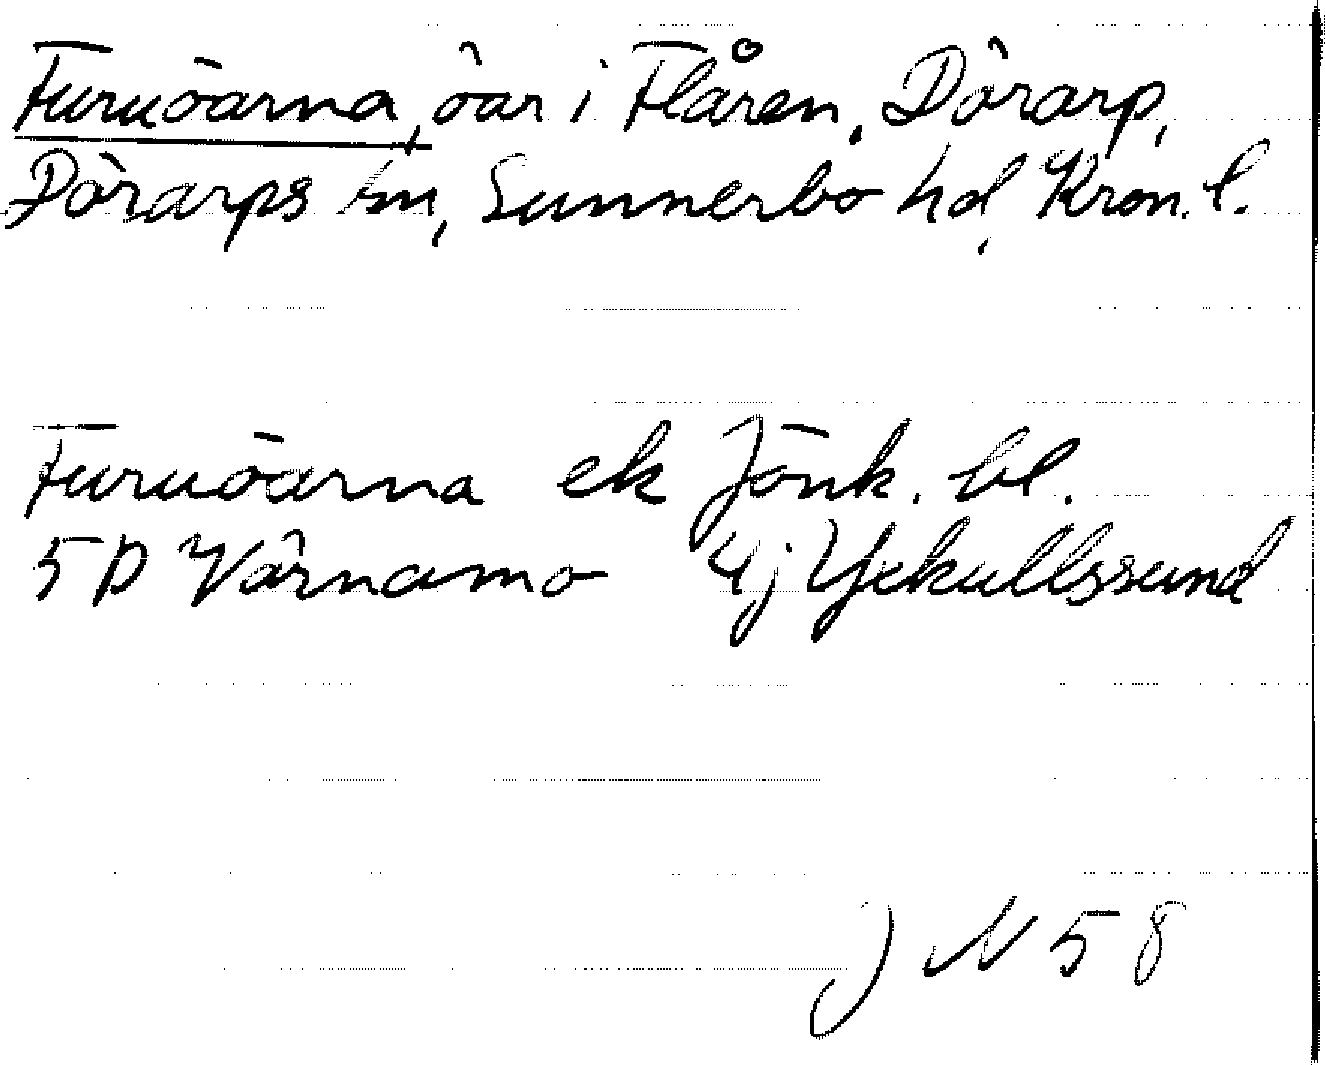 Furuöarna, öar i Flåren, Dörarp,
Dörarps sn, Sunnerbo hd, Kron. l.
Furuöarna ek Jönk. bl.
5D Värnamo 4j Yxkullssund
JN 58